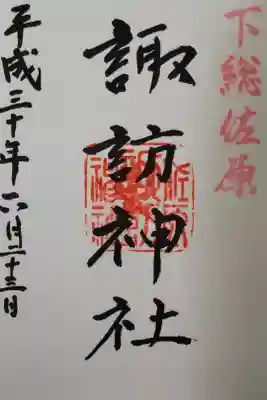 下総佐原
諏訪神社
平成三十年六月二十三日